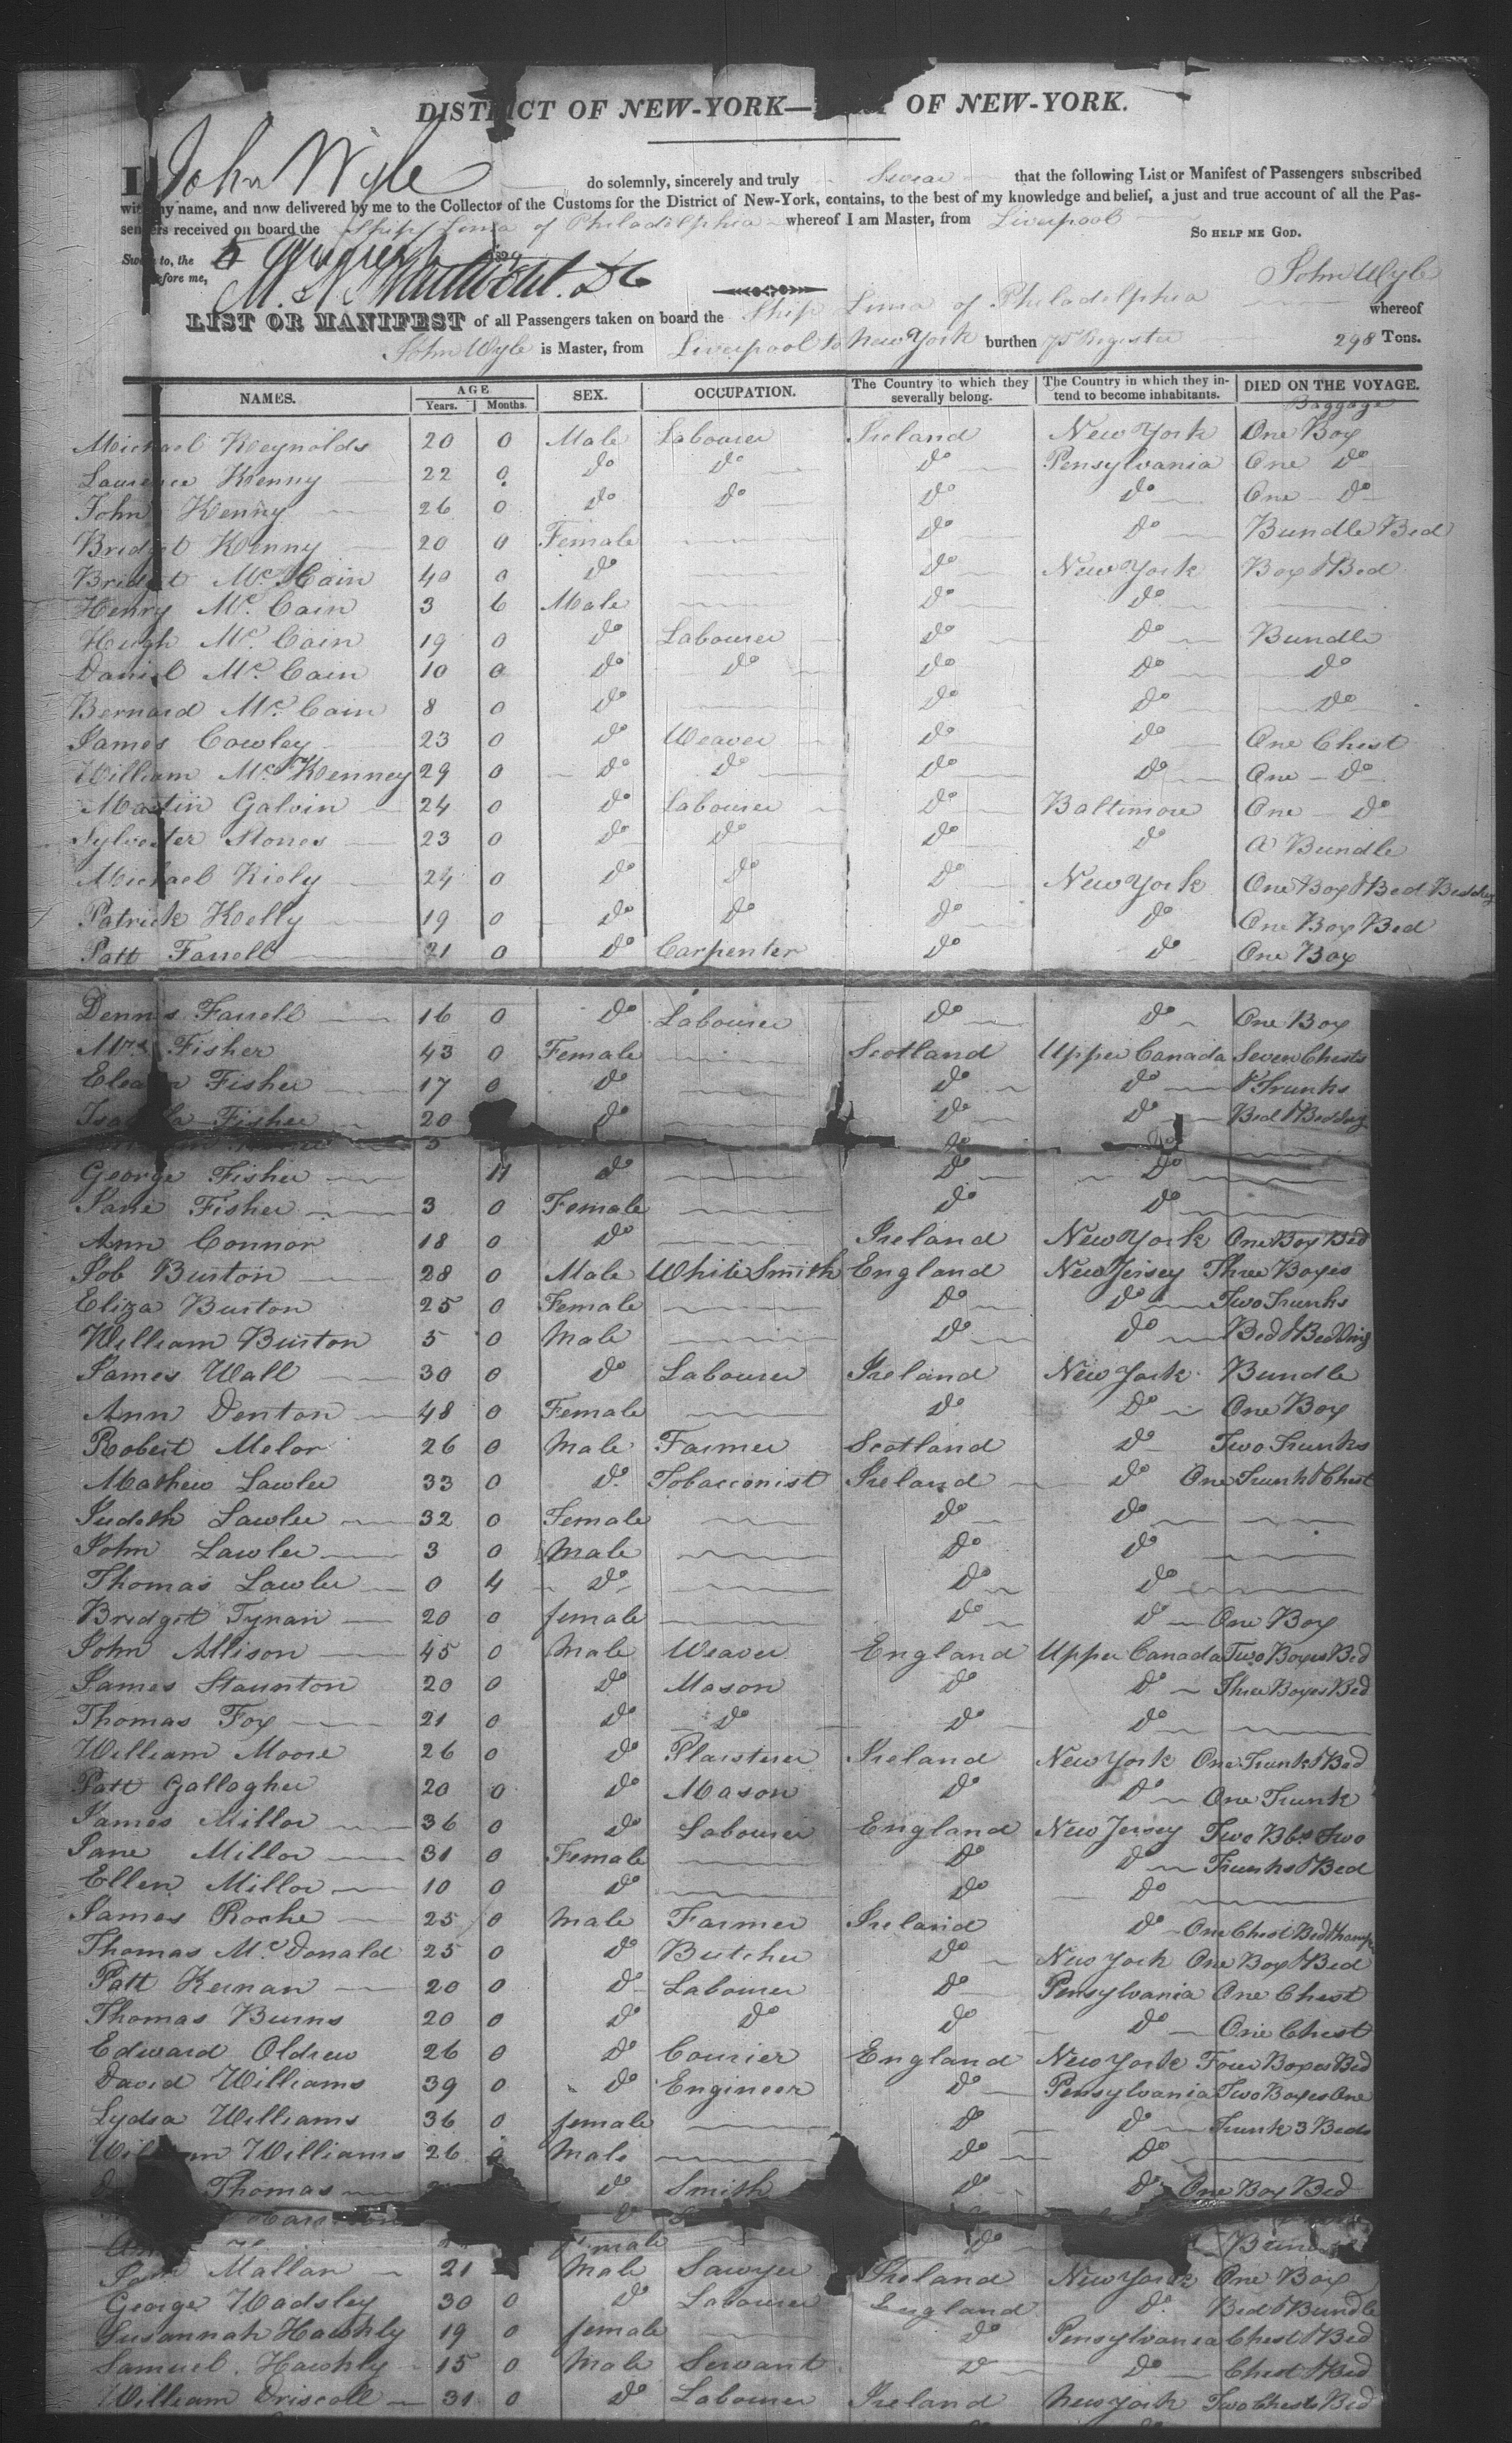 DISTRICT OF NEW-YORK— OF NEW-YORK.
I, John Wyle do solemnly, sincerely and truly Swear that the following List or Manifest of Passengers subscribed
with my name, and now delivered by me to the Collector of the Customs for the District of New-York, contains, to the best of my knowledge and belief, a just and true account of all the Pas-
sengers received on board the Ship Lima of Philadelphia whereof I am Master, from Liverpool
So HELP ME GOD.
Sworn to, the 5 August 182
before me,
John Wyle
LIST OR MANIFEST of all Passengers taken on board the Ship Lima of Philadelphia whereof
John Wyle is Master, from Liverpool to New York burthen Register 298 Tons.
NAMES. AGE Years. Months. SEX. OCCUPATION. The Country to which they severally belong. The Country in which they intend to become inhabitants. DIED ON THE VOYAGE.
Baggage
Michael Reynolds 20 0 Male Labourer Ireland New York One Box
Laurence Kenny 22 0 Do Do Do Pensylvania One Do
John Kenny 26 0 Do Do Do Do One Do
Bridget Kenny 20 0 Female Do Do Bundle Bed
Bridget Mc Cain 40 0 Do Do New York Box & Bed
Henry Mc Cain 3 6 Male Do Do
Hugh Mc Cain 19 0 Do Labourer Do Do Bundle
Daniel Mc Cain 10 0 Do Do Do Do Do
Bernard Mc Cain 8 0 Do Do Do Do
James Cowley 23 0 Do Weaver Do Do One Chest
William Mc Kenney 29 0 Do Do Do Do One Do
Martin Galvin 24 0 Do Labourer Do Baltimore One Do
Sylvester 23 0 Do Do Do Do A Bundle
Michael Kiely 24 0 Do Do Do New York One Box & Bed Bedding
Patrick Kelly 19 0 Do Do Do Do One Box Bed
Patt Farrell 21 0 Do Carpenter Do Do One Box
Dennis Farrell 16 0 Do Labourer Do Do One Box
Mrs Fisher 43 0 Female Scotland Upper Canada Seven Chests
Eleanor Fisher 17 0 Do Do Do & Trunks
Isabella Fisher 20 Do Do Do Bed & Bedding
Do Do
George Fisher 11 Do Do Do
Jane Fisher 3 0 Female Do Do
Ann Connor 18 0 Do Ireland New York One Box Bed
Job Burton 28 0 Male White Smith England New Jersey Three Boxes
Eliza Burton 25 0 Female Do Do Two Trunks
William Burton 5 0 Male Do Do Bed & Bedding
James Wall 30 0 Do Labourer Ireland New York Bundle
Ann Denton 48 0 Female Do Do One Box
Robert Melor 26 0 Male Farmer Scotland Do Two Trunks
Mathew Lawler 33 0 Do Tobacconist Ireland Do One Trunk & Chest
Judeth Lawler 32 0 Female Do Do
John Lawler 3 0 Male Do Do
Thomas Lawler 0 4 Do Do Do
Bridget Tynan 20 0 female Do Do One Box
John Allison 45 0 Male Weaver England Upper Canada Two Boxes Bed
James Staunton 20 0 Do Mason Do Do Three Boxes Bed
Thomas Fox 21 0 Do Do Do Do
William Moore 26 0 Do Plaisterer Ireland New York One Trunk & Bed
Patt Gallagher 20 0 Do Mason Do Do One Trunk
James Millor 36 0 Do Labourer England New Jersey Two Bbs Two
Jane Millor 31 0 Female Do Do Trunks & Bed
Ellen Millor 10 0 Do Do Do
James Roche 25 0 Male Farmer Ireland Do One Chest Bed
Thomas Mc Donald 25 0 Do Butcher Do New York One Box & Bed
Patt Kernan 20 0 Do Labourer Do Pensylvania One Chest
Thomas Burns 20 0 Do Do Do Do One Chest
Edward Oldrew 26 0 Do Courier England New York Four Boxes Bed
David Williams 39 0 Do Engineer Do Pensylvania Two Boxes One
Lydia Williams 36 0 female Do Do Trunk 3 Beds
William Williams 26 0 Male Do Do
Thomas Do Smith Do Do One Box Bed
Do
Do
Mallan 21 Male Sawyer Ireland New York One Box
George Wadsley 30 0 Do Labourer England Do Bed & Bundle
Susannah Hawkly 19 0 female Do Pensylvania Chest & Bed
Samuel Hawkly 15 0 Male Servant Do Do Chest & Bed
William Driscoll 31 0 Do Labourer Ireland New York Two Chests Bed